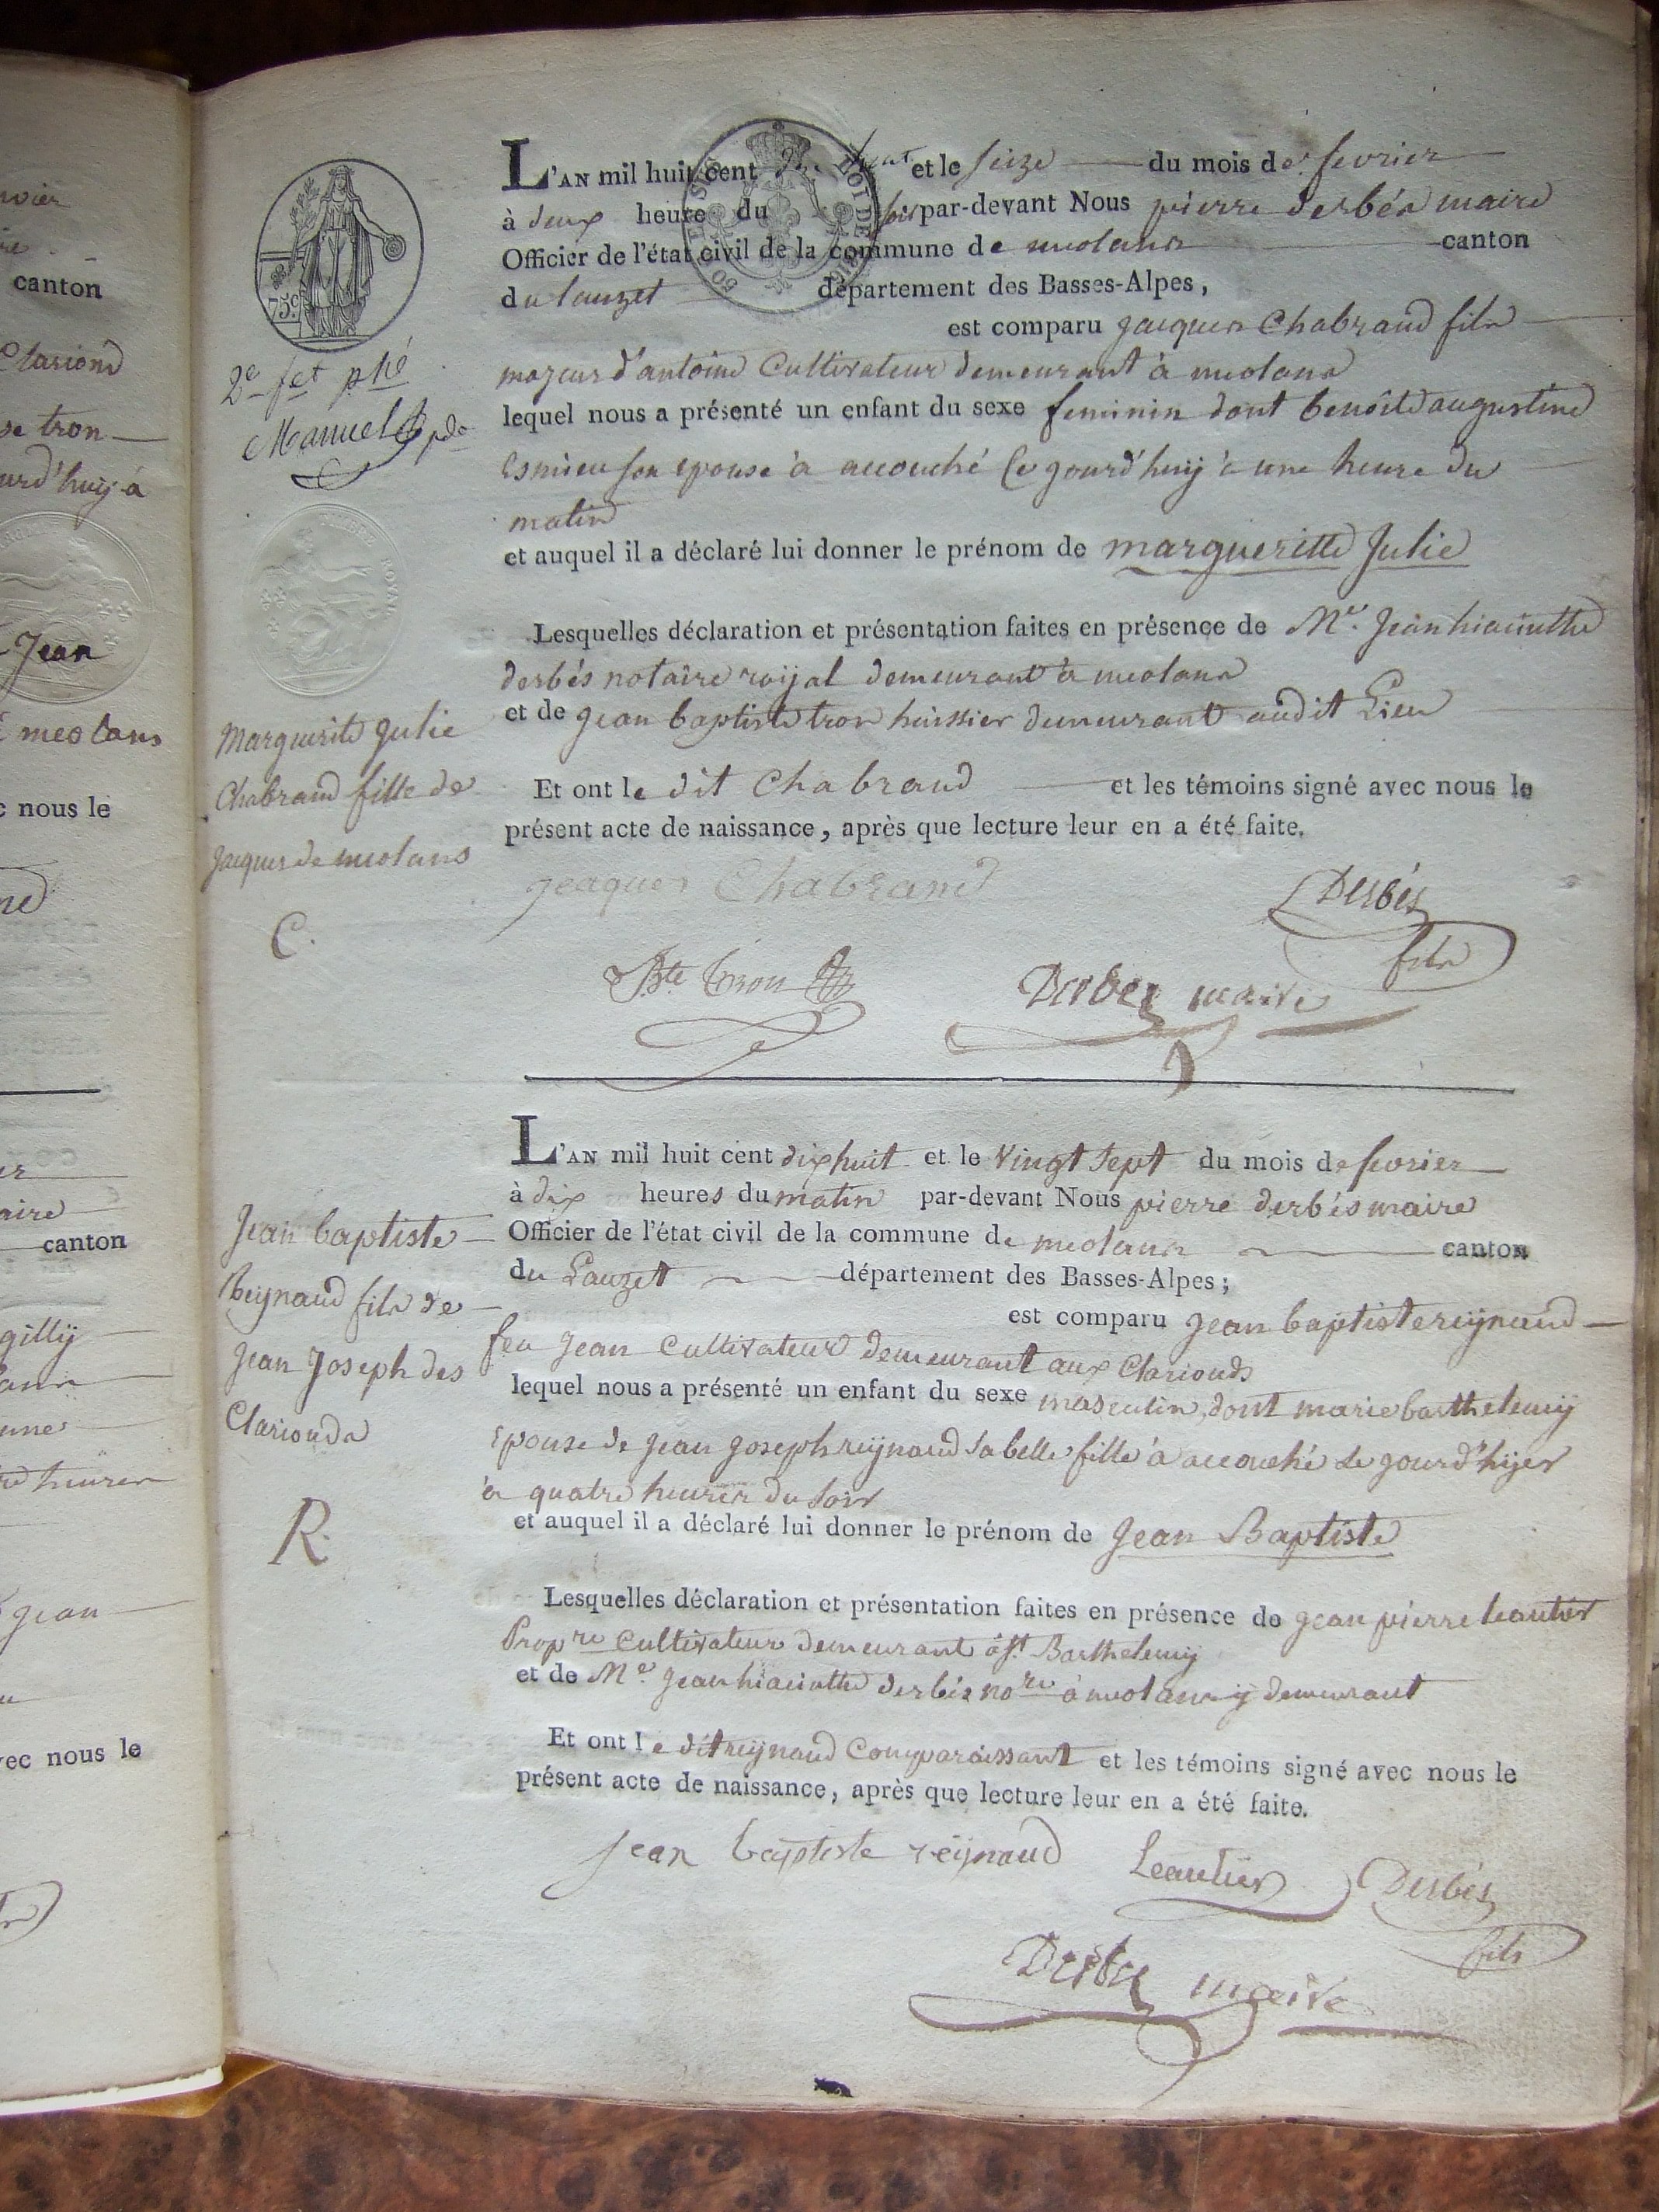 rvier
canton
Clariond
se tron
urd'huÿ à
Jean
meolans
nous le
aire
canton
gillÿ
heures
jean
vec nous le
75.c
2e fet phé
Manuel
ROYAL
L'AN mil huit cent dix huit et le seize du mois de fevrier
à deux heures du soir par-devant Nous pierre derbés maire
Officier de l'état civil de la commune de meolans canton
du lauzet département des Basses-Alpes,
est comparu jacques Chabrand fils
majeur d'antoine Cultivateur demeurant à meolans
lequel nous a présenté un enfant du sexe feminin dont benoite augustine
Esmieu son epouse à accouché Ce jourd'huÿ à une heure du
matin
et auquel il a déclaré lui donner le prénom de margueritte Julie
Lesquelles déclaration et présentation faites en présence de Me. Jean hiacinthe
derbés notaire roÿal demeurant à meolans
et de jean baptiste tron huissier demeurant audit Lieu
Marguerite Julie
Chabrand fille de
Jacques de meolans
C.
Et ont le dit Chabrand et les témoins signé avec nous le
présent acte de naissance, après que lecture leur en a été faite.
jeaques Chabrand
Derbés
fils
J Bte tron
Derbés maire
L'AN mil huit cent dix huit et le vingt sept du mois de fevrier
à dix heures du matin par-devant Nous pierre derbés maire
Officier de l'état civil de la commune de meolans canton
du Lauzet département des Basses-Alpes;
est comparu jean baptiste reÿnaud
feu jean Cultivateur demeurant aux Clarionds
lequel nous a présenté un enfant du sexe masculin, dont marie barthelemÿ
epouse de jean joseph reÿnaud sa belle fille à accouché le jourd'hÿer
à quatre heures du soir
et auquel il a déclaré lui donner le prénom de Jean Baptiste
Jean baptiste
Reÿnaud fils de
jean Joseph des
Clarionds
R.
Lesquelles déclaration et présentation faites en présence de jean pierre leautier
Propre Cultivateur demeurant à St. Barthelemÿ
et de Me. Jean hiacinthe derbés nore à meolans ÿ demeurant
Et ont le dit reÿnaud Comparaissant et les témoins signé avec nous le
présent acte de naissance, après que lecture leur en a été faite.
jean baptiste reÿnaud
Leautier
Derbés
fils
Derbés maire